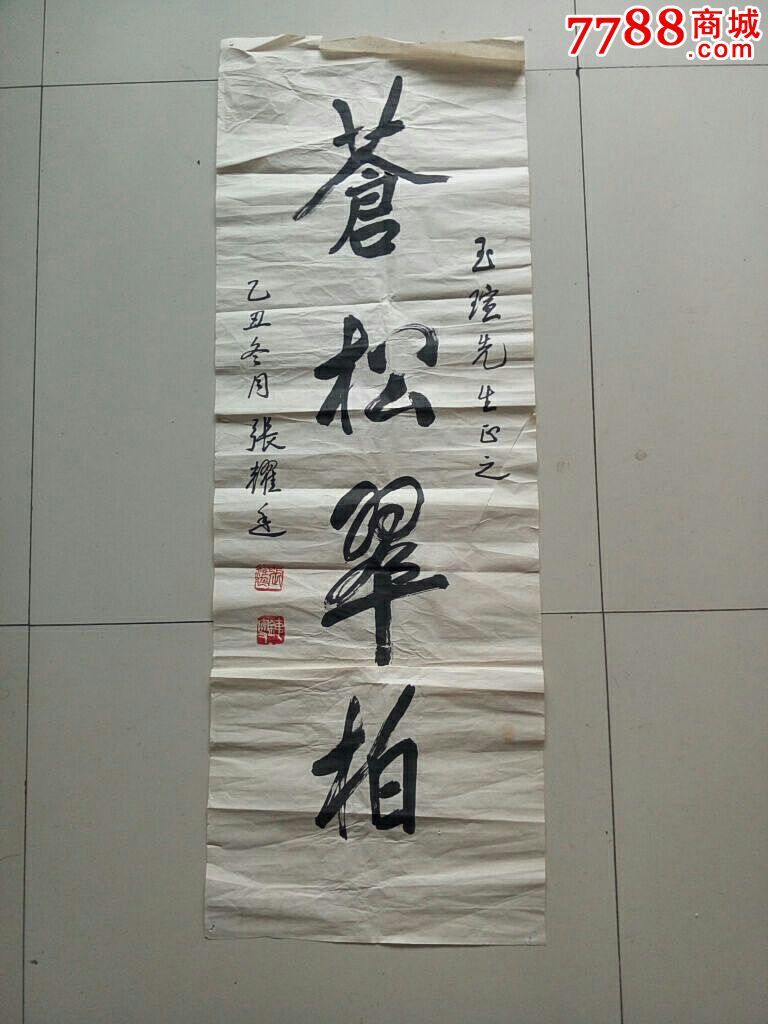 7788商城
.com
玉瑄先生正之
蒼松翠柏
乙丑冬月 張耀廷